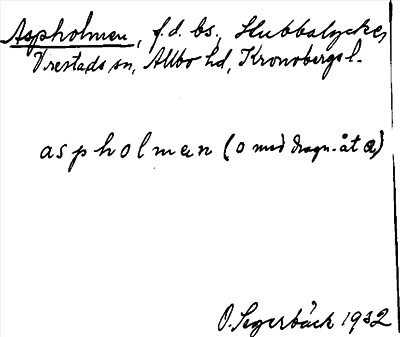 Aspholmen, f.d. bs., Stubbalycke,
Vrestads sn, Allbo hd, Kronobergs l.
aspholmen (o med dragn. åt a)
O. Segerbäck 1932